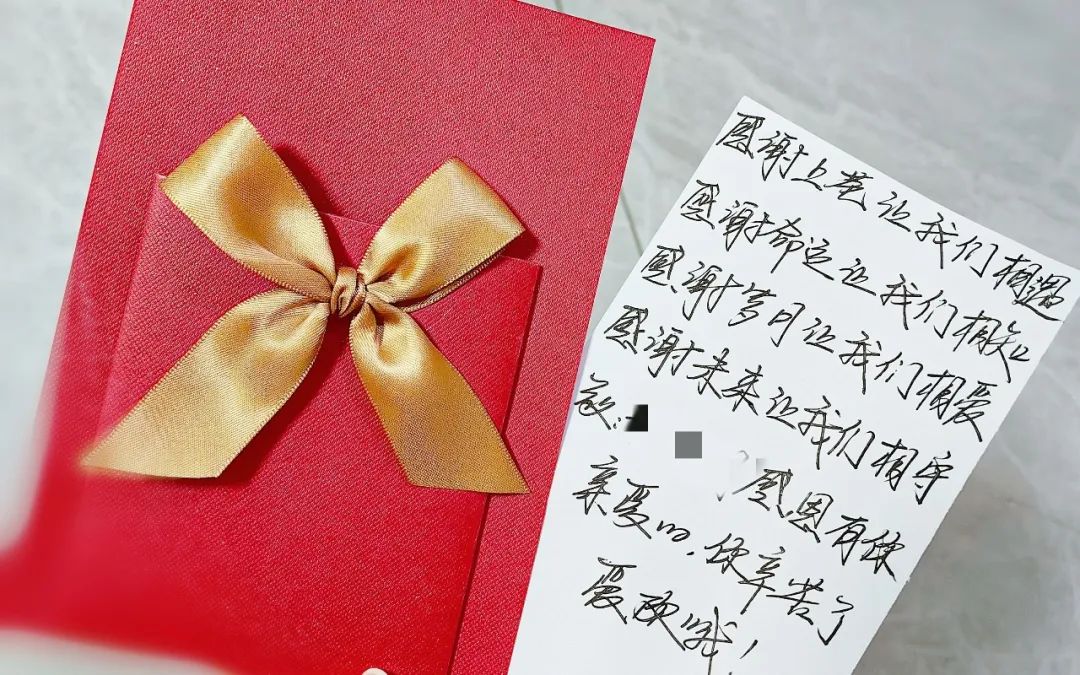 感谢上苍让我们相遇
感谢命运让我们相知
感谢岁月让我们相爱
感谢未来让我们相守
致:
感恩有你
亲爱的,你辛苦了
爱你哦!